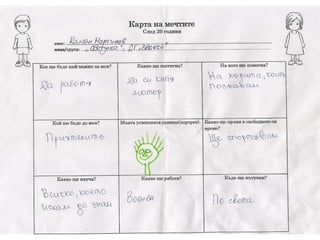 Карта на мечтите
След 20 години
име: Калоян Мартинов
клас/група:
Кое ще бъде най-важно за мен?
Какво ще постигна?
На кого ще помогна?
Да работя
Да си купя
мотор
На хората, които
познавам
Кой ще бъде до мен?
Моята усмихната снимка/портрет:
Какво ще правя в свободното си
време?
Приятелите
Ще спортувам
Какво ще науча?
Какво ще работя?
Къде ще пътувам?
Всичко, което
искам да знам
Военен
По света